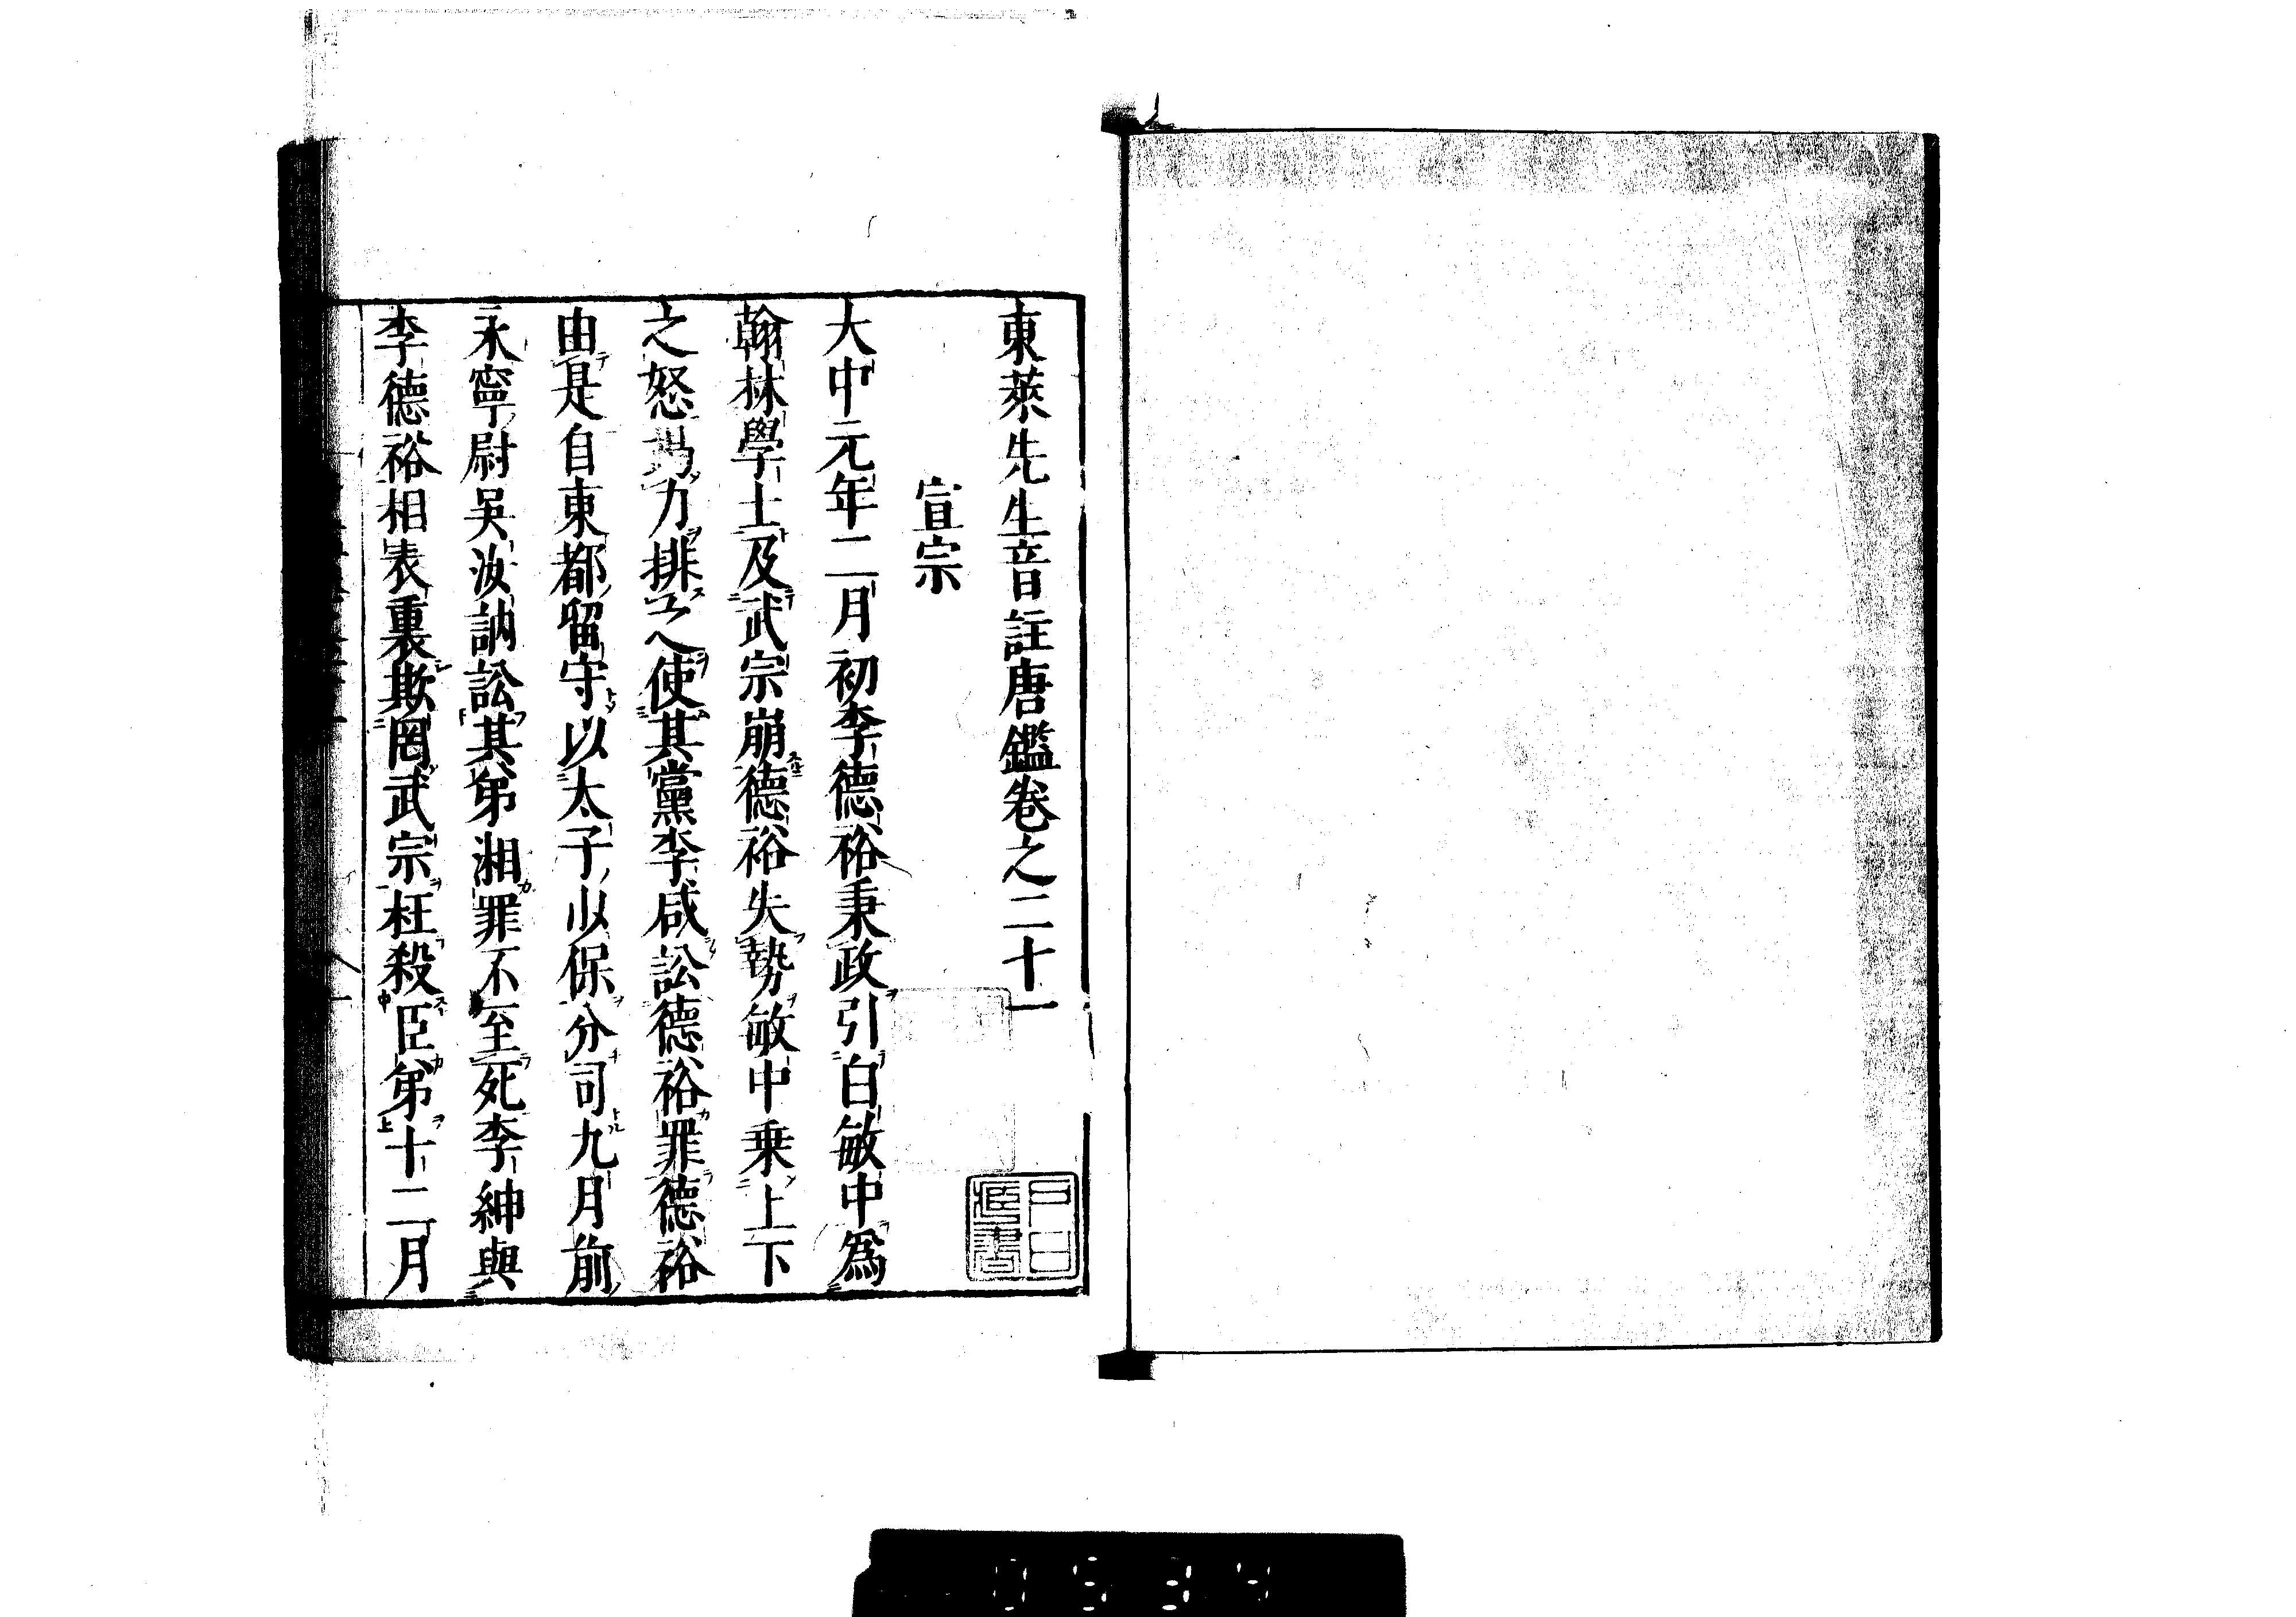 東萊先生音註唐鑑卷之二十一
宣宗
大中元年二月初李德裕秉政引白敏中爲
翰林學士及武宗崩德裕失勢敏中乗上下
之怒竭力排之使其黨李咸訟德裕罪德裕
由是自東都留守以太子少保分司九月前
永寧尉吳汝訥訟其弟湘罪不至死李紳與
李德裕相表裏欺罔武宗枉殺臣弟十二月